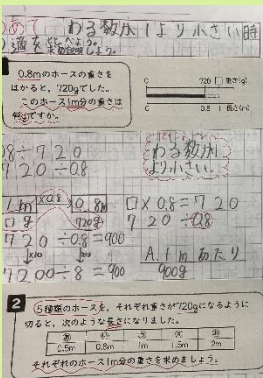 めあて わる数が1より小さい時
1
0.8mのホースの重さを
はかると、720gでした。
このホース1m分の重さは
何gですか。
0 720 □ 重さ(g)
0 0.8 1 長さ(m)
0.8÷720
720÷0.8
わる数が
1より小さい。
1m ×0.8 0.8m
□g 720g
□×0.8=720
720÷0.8
720÷0.8=900
×10 ×10
7200÷8=900
A.1mあたり
900g
2
5種類のホースを、それぞれ重さが720gになるように
切ると、次のような長さになりました。
0.5m 0.8m 1m 1.5m 2m
それぞれのホース1m分の重さを求めましょう。